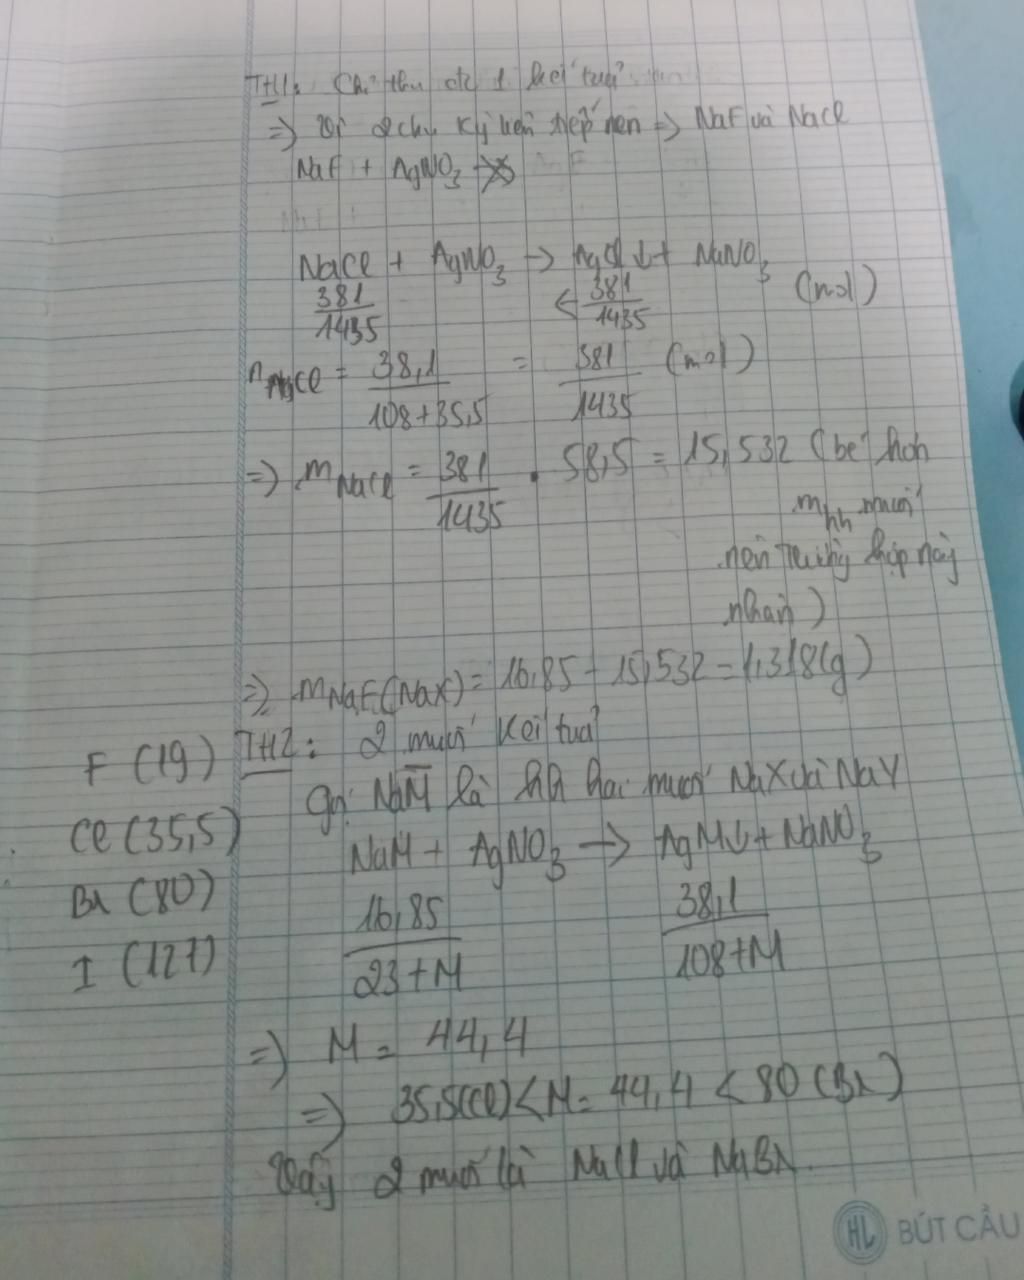 TH1: Chỉ thu đc 1 kết tủa
=> Vì 2 chu kỳ liên tiếp nên => NaF và NaCl
NaF + AgNO3 -x>
NaCl + AgNO3 -> AgCl ↓ + NaNO3
381/1435 <- 381/1435 (mol)
nAgCl = 38,1/(108+35,5) = 381/1435 (mol)
=> mNaCl = 381/1435 . 58,5 = 15,532 (bé hơn
mhh muối
nên trường hợp này
nhận)
=> mNaF(NaX) = 16,85 - 15,532 = 1,318(g)
TH2: 2 muối kết tủa
Gọi NaM̅ là hh hai muối NaX và NaY
NaM + AgNO3 -> AgM↓ + NaNO3
16,85/(23+M) 38,1/(108+M)
=> M = 44,4
=> 35,5(Cl) < M = 44,4 < 80 (Br)
Vậy 2 muối là NaCl và NaBr.
F (19)
Cl (35,5)
Br (80)
I (127)
HL BÚT CẦU